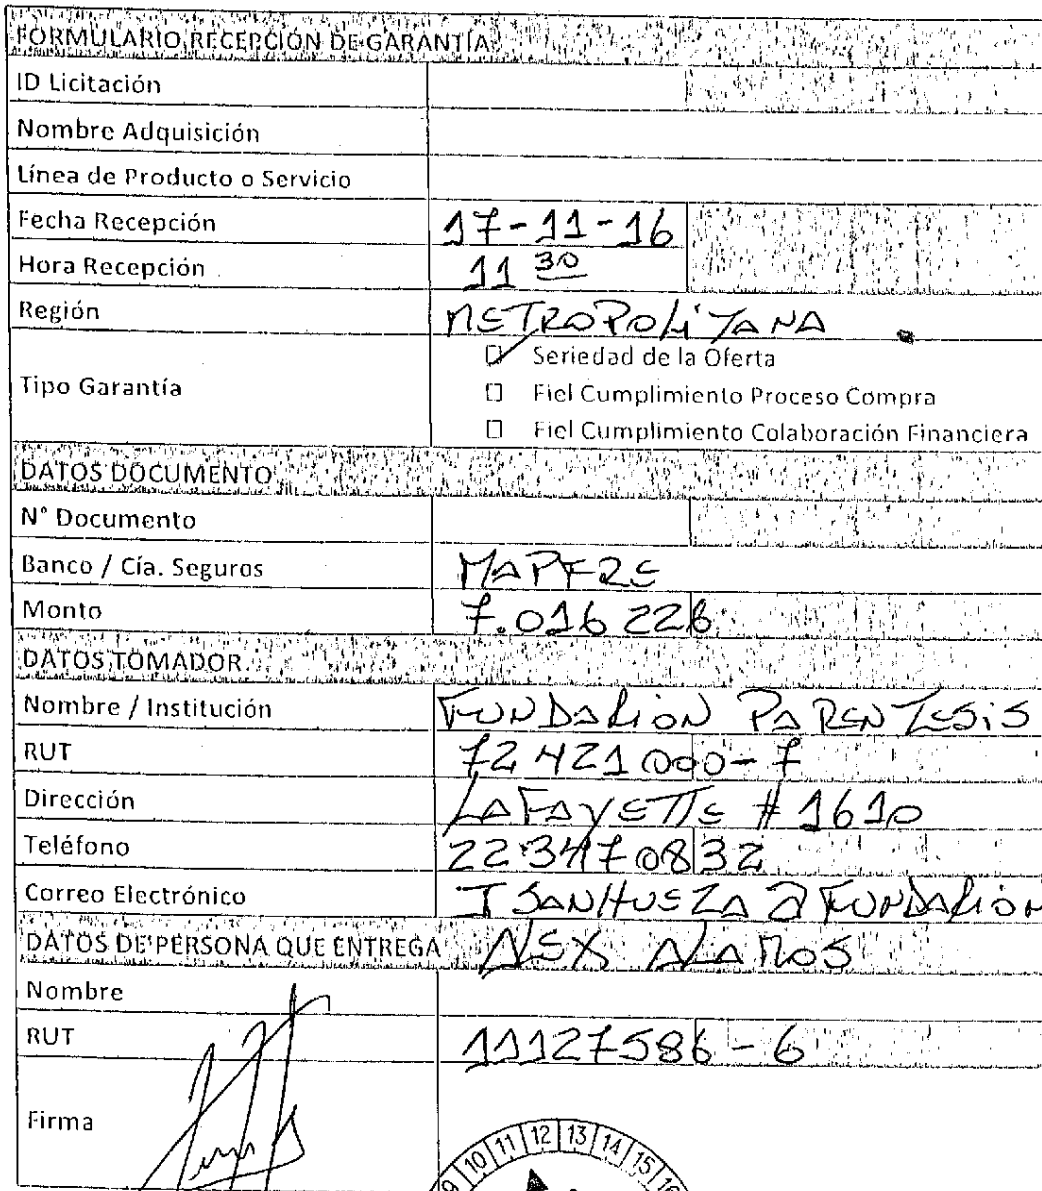 FORMULARIO RECEPCIÓN DE GARANTÍA
ID Licitación
Nombre Adquisición
Línea de Producto o Servicio
Fecha Recepción 17-11-16
Hora Recepción 11 30
Región METROPOLITANA
Tipo Garantía
Seriedad de la Oferta
Fiel Cumplimiento Proceso Compra
Fiel Cumplimiento Colaboración Financiera
DATOS DOCUMENTO
N° Documento
Banco / Cía. Seguros MAPFRE
Monto 7.016 226
DATOS TOMADOR
Nombre / Institución FUNDACION PARENTESIS
RUT 72 421 000-7
Dirección LAFAYETTE # 1610
Teléfono 22 3470832
Correo Electrónico JSANHUEZA @ FUNDACION
DATOS DE PERSONA QUE ENTREGA ALEX ALAMOS
Nombre
RUT 11127586-6
Firma
9 10 11 12 13 14 15 16